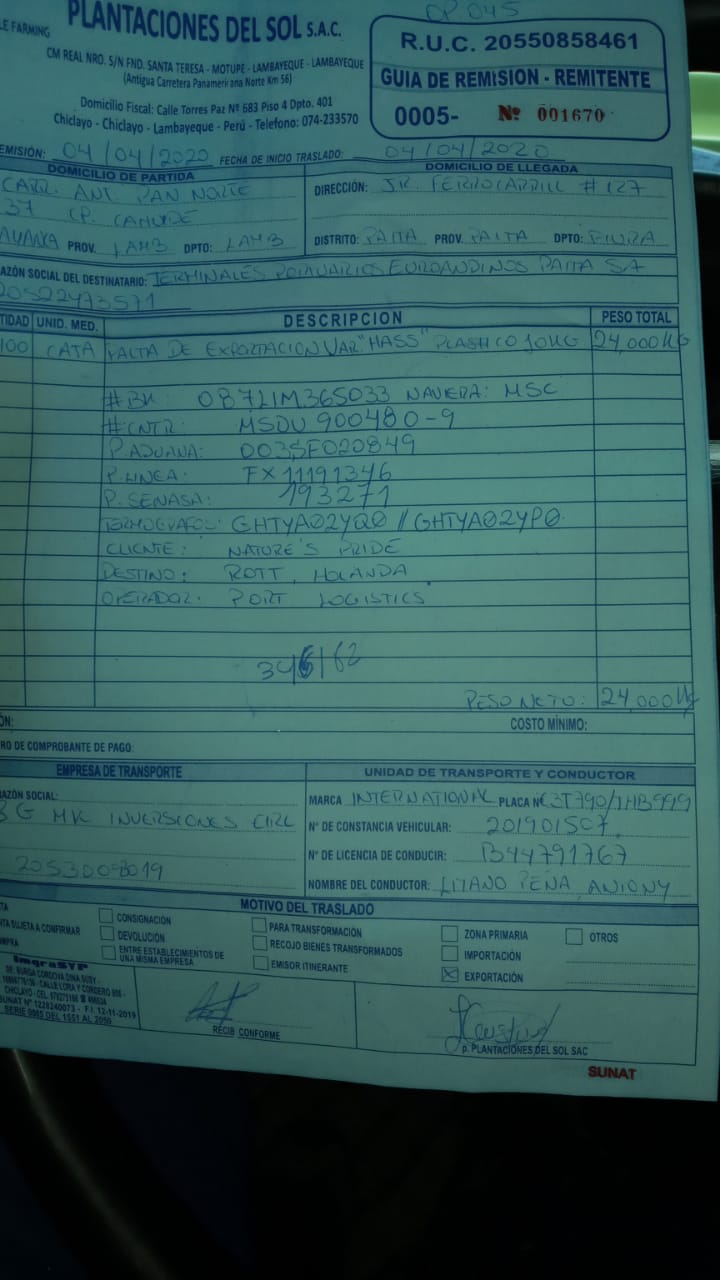 OP 045
LE FARMING
PLANTACIONES DEL SOL S.A.C.
CM REAL NRO. S/N FND. SANTA TERESA - MOTUPE - LAMBAYEQUE - LAMBAYEQUE
(Antigua Carretera Panamericana Norte Km 56)
Domicilio Fiscal: Calle Torres Paz Nº 683 Piso 4 Dpto. 401
Chiclayo - Chiclayo - Lambayeque - Perú - Telefono: 074-233570
R.U.C. 20550858461
GUIA DE REMISION - REMITENTE
0005- Nº 001670
EMISIÓN: 04/04/2020 FECHA DE INICIO TRASLADO: 04/04/2020
DOMICILIO DE PARTIDA
CARR. ANT. PAN NORTE
37 CP. CAMUDE
PROV. LAMB DPTO: LAMB
DOMICILIO DE LLEGADA
DIRECCIÓN: JR. FERROCARRILL # 127
DISTRITO: PAITA PROV. PAITA DPTO: PIURA
AZÓN SOCIAL DEL DESTINATARIO: TERMINALES PORTUARIOS EUROANDINOS PAITA SA
20522473571
TIDAD UNID. MED. DESCRIPCION PESO TOTAL
100 CAJA PALTA DE EXPORTACION VAR "HASS" PLASTICO 10KG 24,000KG
#BK: 087LIM365033 NAVIERA: MSC
#CNTR: MSDU 900480-9
P. ADUANA: 0035F020849
P. LINEA: FX11191346
P. SENASA: 193271
TERMOGRAFOS: GHTYA02YQ0 // GHTYA02YP0
CLIENTE: NATURE'S PRIDE
DESTINO: ROTT, HOLANDA
OPERADOR: PORT LOGISTICS
PESO NETO: 24,000Kg
ÓN: COSTO MÍNIMO:
RO DE COMPROBANTE DE PAGO:
EMPRESA DE TRANSPORTE
AZÓN SOCIAL:
G MK INVERSIONES EIRL
UNIDAD DE TRANSPORTE Y CONDUCTOR
MARCA INTERNATIONAL PLACA Nº
Nº DE CONSTANCIA VEHICULAR: 201901507
Nº DE LICENCIA DE CONDUCIR: B44791767
NOMBRE DEL CONDUCTOR: LITANO PEÑA ANIONY
MOTIVO DEL TRASLADO
TA
NTA SUJETA A CONFIRMAR
MPRA
CONSIGNACIÓN
DEVOLUCIÓN
ENTRE ESTABLECIMIENTOS DE
UNA MISMA EMPRESA
PARA TRANSFORMACIÓN
RECOJO BIENES TRANSFORMADOS
EMISOR ITINERANTE
ZONA PRIMARIA
IMPORTACIÓN
EXPORTACIÓN
OTROS
ImgraSYP
DE: BURGA CORDOVA DINA SUSY
SUNAT Nº 1228240073 - F.I. 12-11-2019
SERIE 0005 DEL 1551 AL 2050
RECIBI CONFORME
p. PLANTACIONES DEL SOL SAC
SUNAT